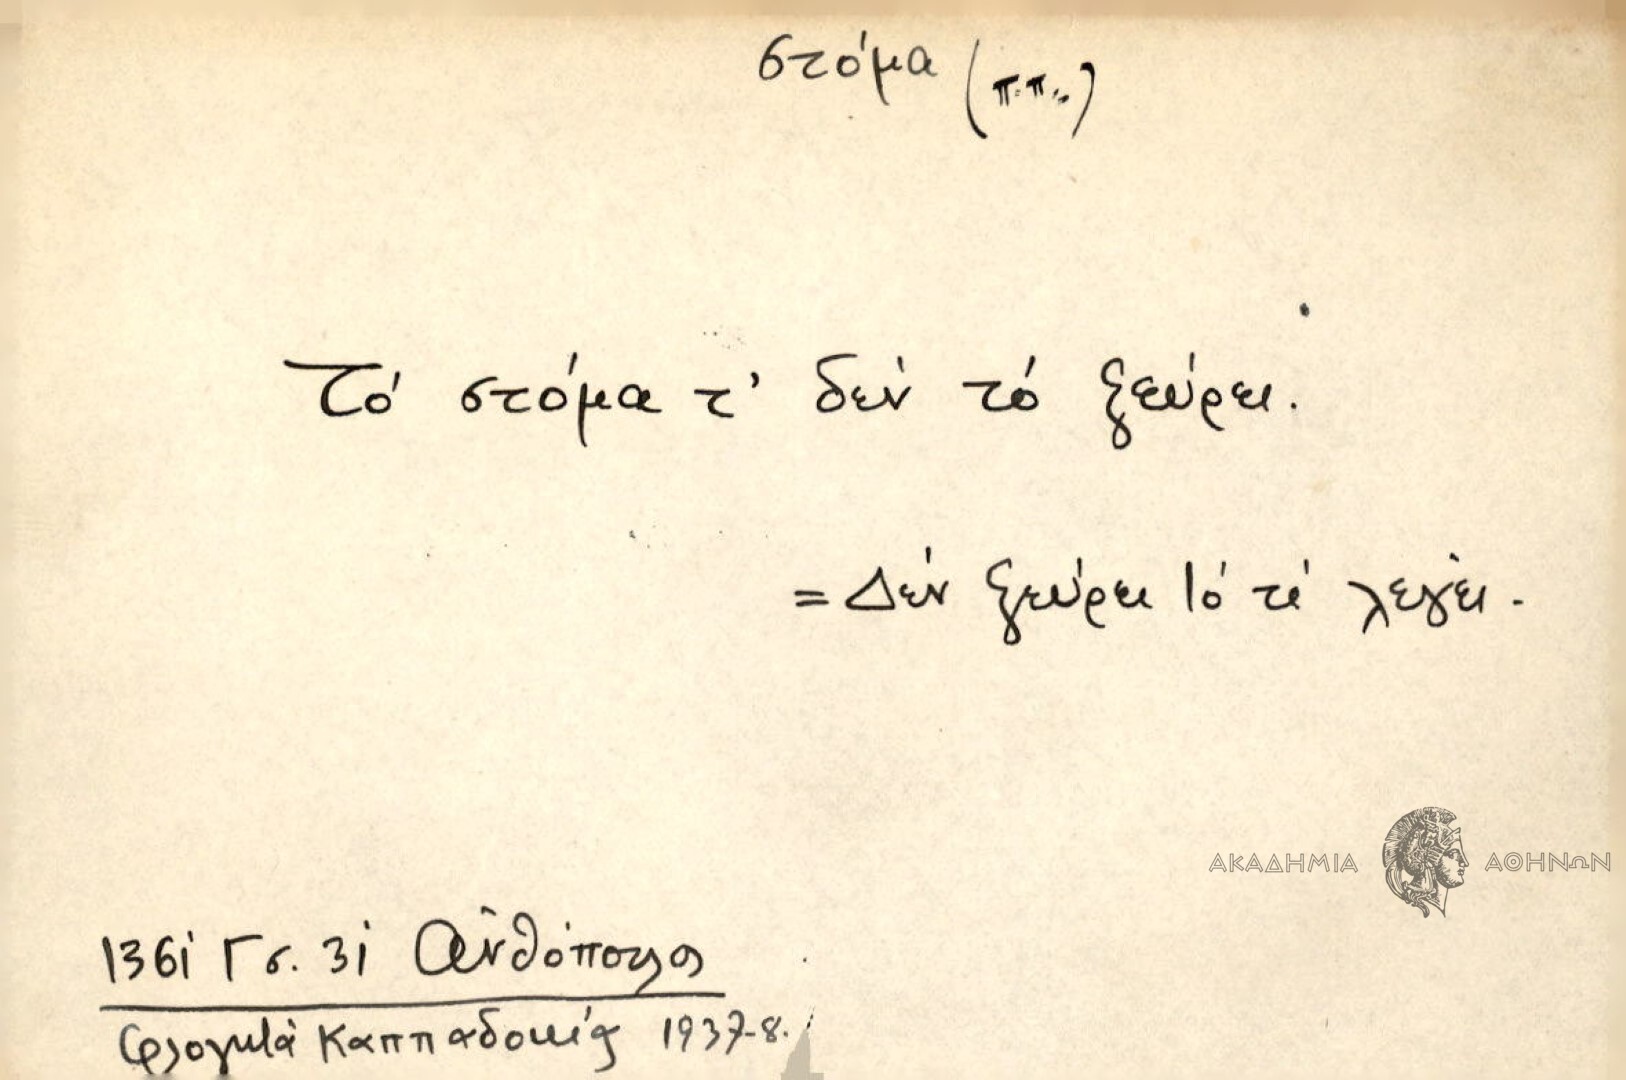 στόμα (π.π..)
Τό στόμα τ' δέν τό ξεύρει.
= Δέν ξεύρει τό τί λέγει.
ΑΚΑΔΗΜΙΑ ΑΘΗΝΩΝ
1361 Γς. 31 Ἀνθόπουλος
Φλογητά Καππαδοκίας 1937-8.